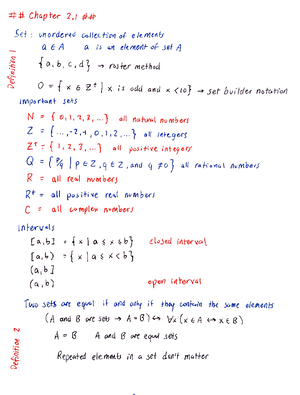 ## Chapter 2.1 ##
Set: unordered collection of elements
a ∈ A a is an element of set A
Definition 1
{a, b, c, d} → roster method
O = { x ∈ Z⁺ | x is odd and x < 10} → set builder notation
Important sets
N = { 0, 1, 2, 3, ...} all natural numbers
Z = { ..., -2, -1, 0, 1, 2, ...} all integers
Z⁺ = { 1, 2, 3, ...} all positive integers
Q = { P/q | p ∈ Z, q ∈ Z, and q ≠ 0} all rational numbers
R = all real numbers
R⁺ = all positive real numbers
C = all complex numbers
Intervals
[a, b] = { x | a ≤ x ≤ b} closed interval
[a, b) = { x | a ≤ x < b}
(a, b]
(a, b) open interval
Two sets are equal if and only if they contain the same elements
(A and B are sets → A = B) ↔ ∀x (x ∈ A ↔ x ∈ B)
A = B A and B are equal sets
Definition 2
Repeated elements in a set don't matter